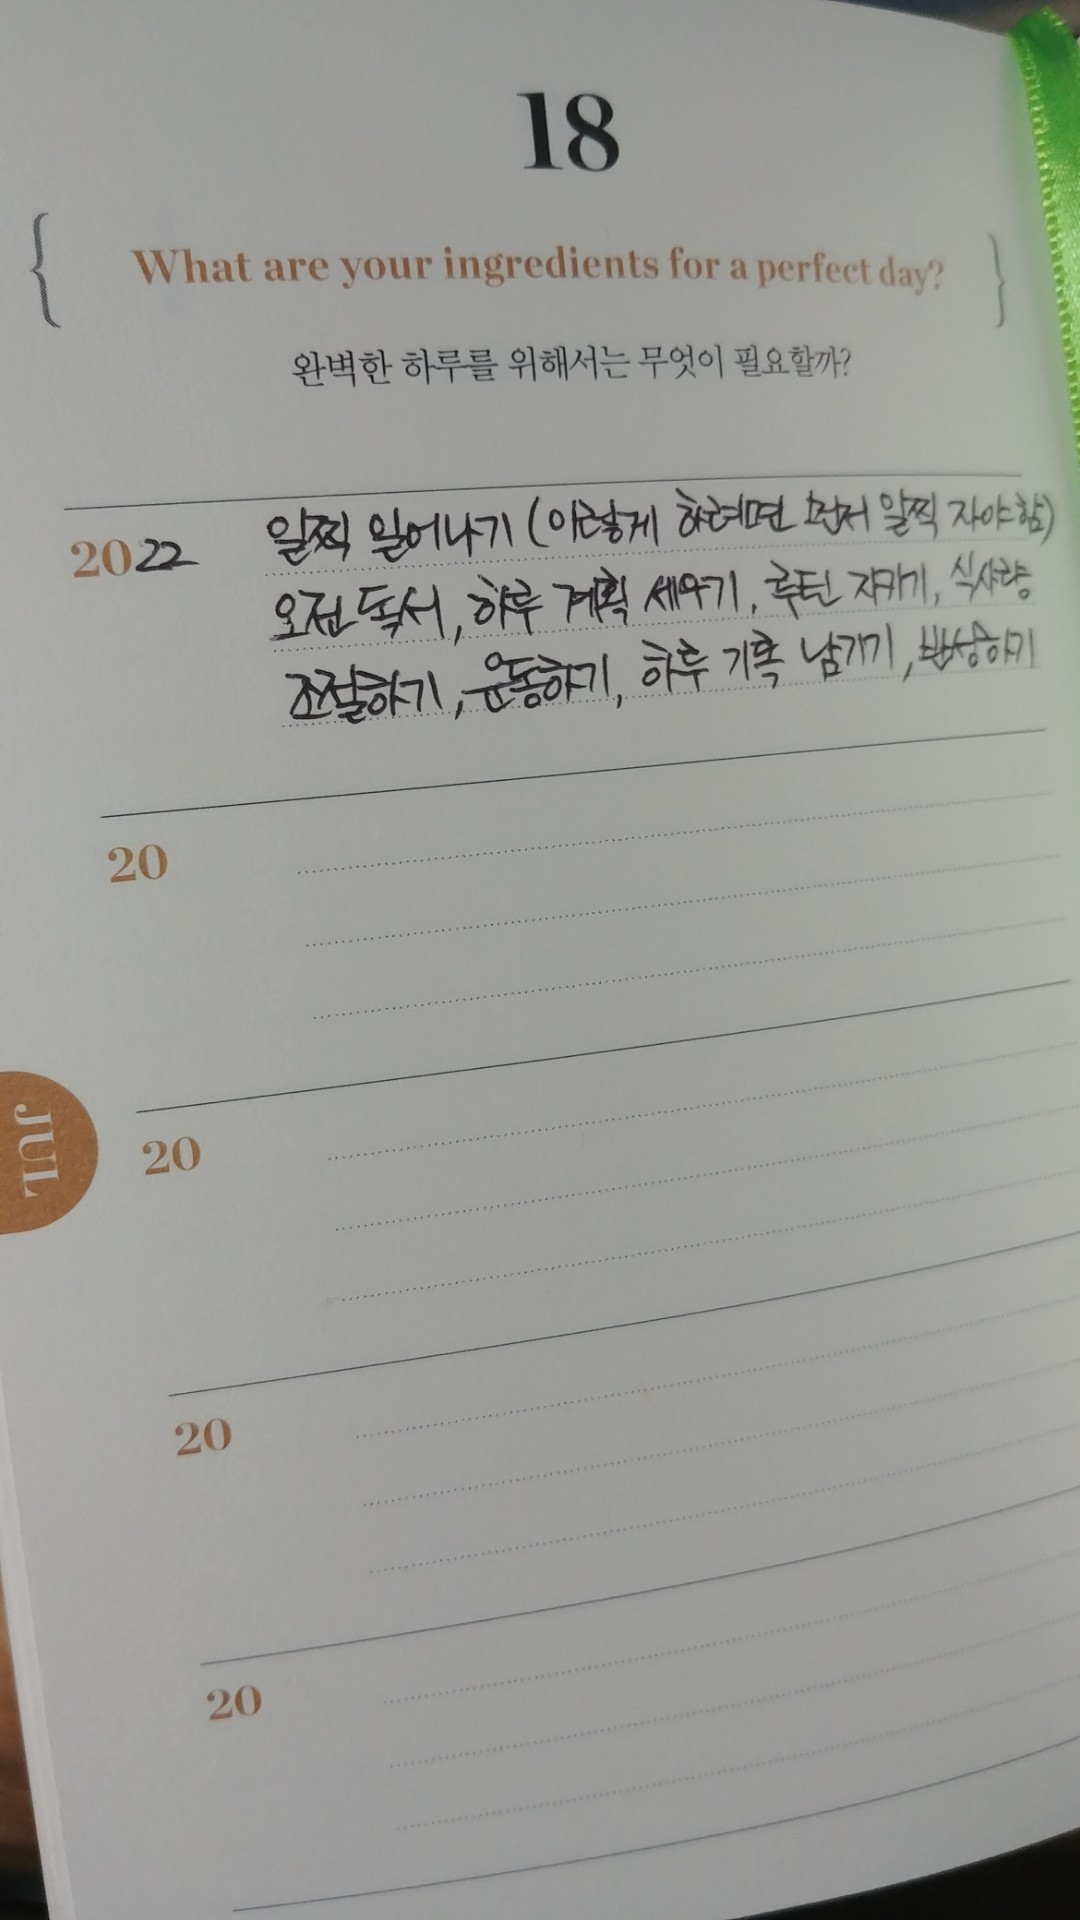 18
{ What are your ingredients for a perfect day? }
완벽한 하루를 위해서는 무엇이 필요할까?
2022 일찍 일어나기 (이렇게 하려면 먼저 일찍 자야함)
오전 독서, 하루 계획 세우기, 루틴 지키기, 식사량
조절하기, 운동하기, 하루 기록 남기기, 반성하기
20
20
JUL
20
20